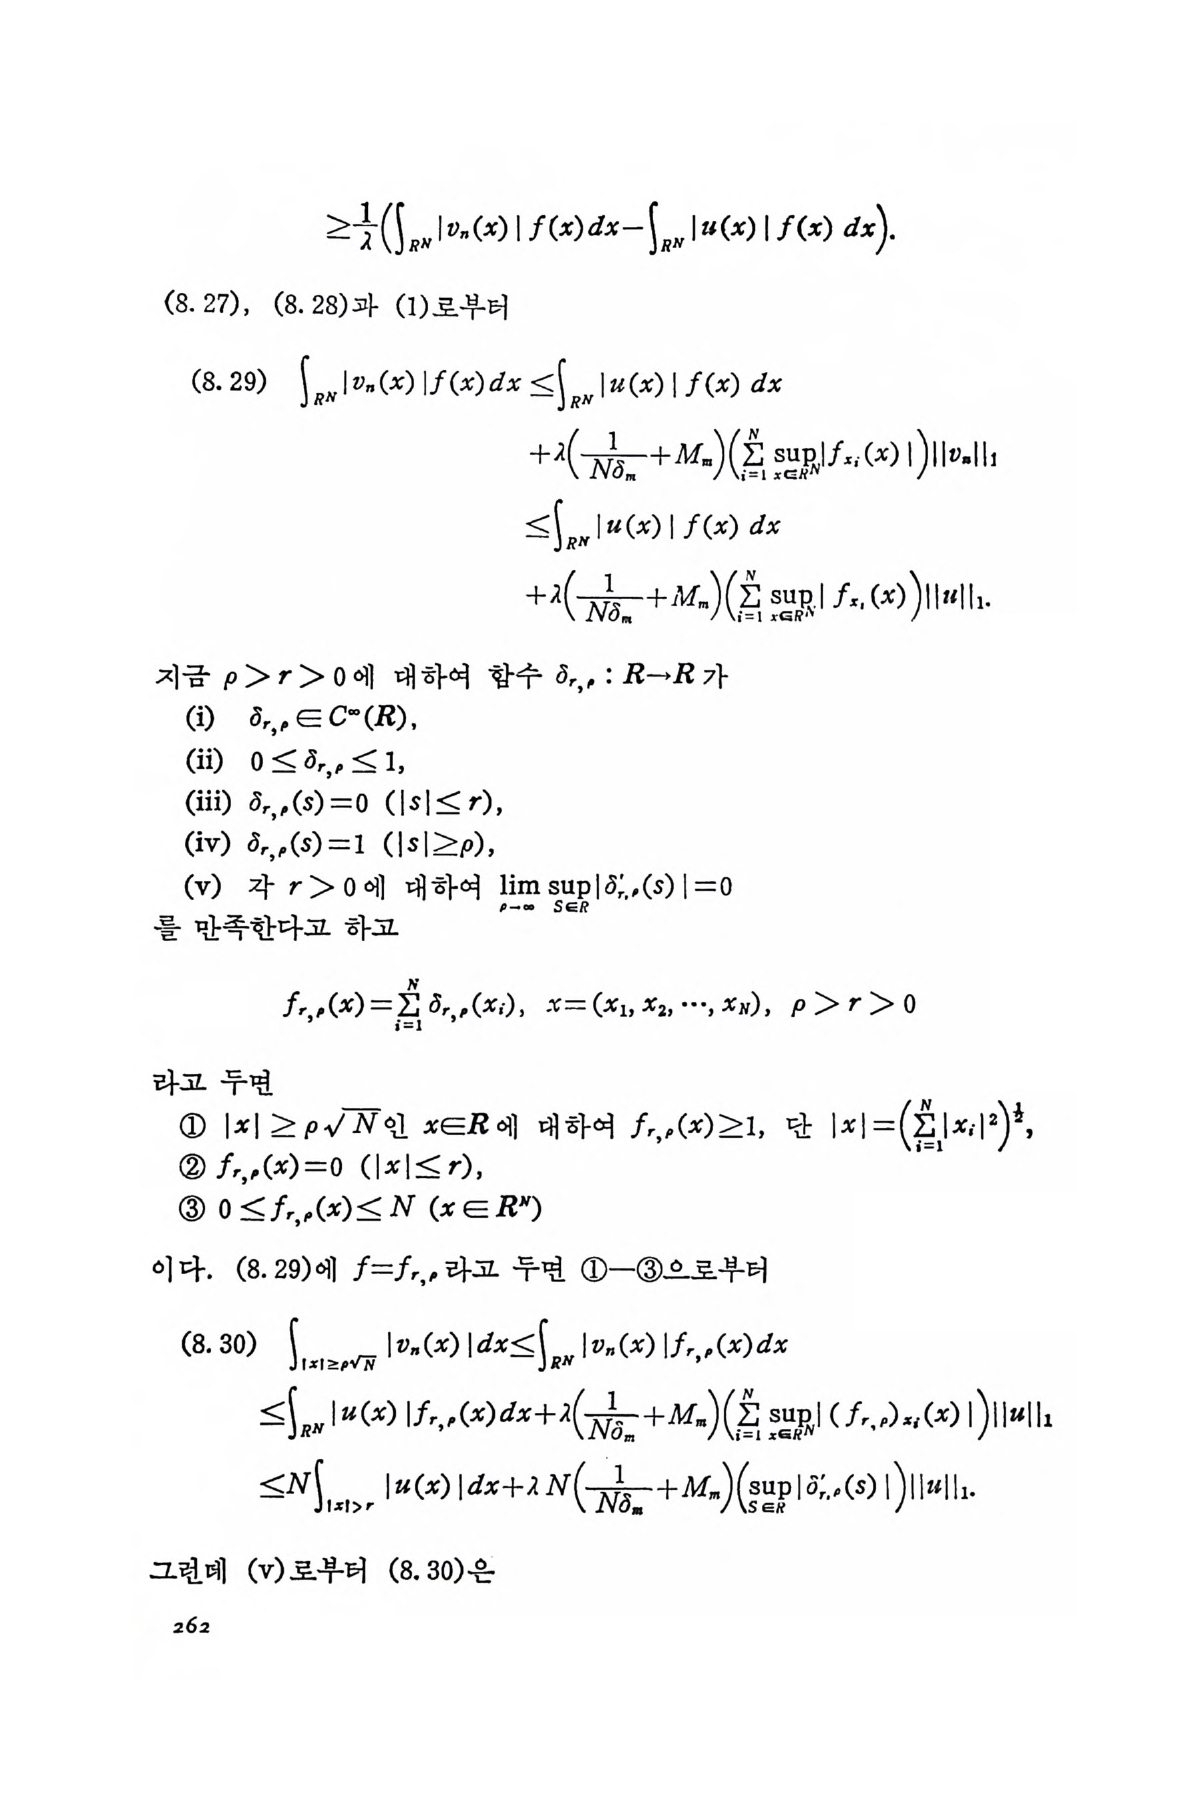 ≥1/λ(∫_{R^N}|v_n(x)|f(x)dx−∫_{R^N}|u(x)|f(x) dx).
(8. 27), (8. 28)과 (1)로부터
(8. 29) ∫_{R^N}|v_n(x)|f(x)dx ≤∫_{R^N}|u(x)|f(x) dx
+λ(1/(Nδ_m)+M_m)(∑_{i=1}^N sup_{x∈R^N}|f_{x_i}(x)|)||v_n||_1
≤∫_{R^N}|u(x)|f(x) dx
+λ(1/(Nδ_m)+M_m)(∑_{i=1}^N sup_{x∈R^N}| f_{x_i}(x))||u||_1.
지금 ρ>r>0에 대하여 함수 δ_{r,ρ} : R→R가
(i) δ_{r,ρ}∈C^∞(R),
(ii) 0≤δ_{r,ρ}≤1,
(iii) δ_{r,ρ}(s)=0 (|s|≤r),
(iv) δ_{r,ρ}(s)=1 (|s|≥ρ),
(v) 각 r>0에 대하여 lim_{ρ→∞} sup_{S∈R}|δ'_{r,ρ}(s)|=0
를 만족한다고 하고
f_{r,ρ}(x)=∑_{i=1}^N δ_{r,ρ}(x_i), x=(x_1, x_2, ⋯, x_N), ρ>r>0
라고 두면
① |x|≥ρ√N인 x∈R에 대하여 f_{r,ρ}(x)≥1, 단 |x|=(∑_{i=1}^N|x_i|^2)^{1/2},
② f_{r,ρ}(x)=0 (|x|≤r),
③ 0≤f_{r,ρ}(x)≤N (x∈R^N)
이다. (8. 29)에 f=f_{r,ρ}라고 두면 ①—③으로부터
(8. 30) ∫_{|x|≥ρ√N} |v_n(x)|dx≤∫_{R^N}|v_n(x)|f_{r,ρ}(x)dx
≤∫_{R^N}|u(x)|f_{r,ρ}(x)dx+λ(1/(Nδ_m)+M_m)(∑_{i=1}^N sup_{x∈R^N}|(f_{r,ρ})_{x_i}(x)|)||u||_1
≤N∫_{|x|>r} |u(x)|dx+λN(1/(Nδ_m)+M_m)(sup_{S∈R}|δ'_{r,ρ}(s)|)||u||_1.
그런데 (v)로부터 (8. 30)은
262